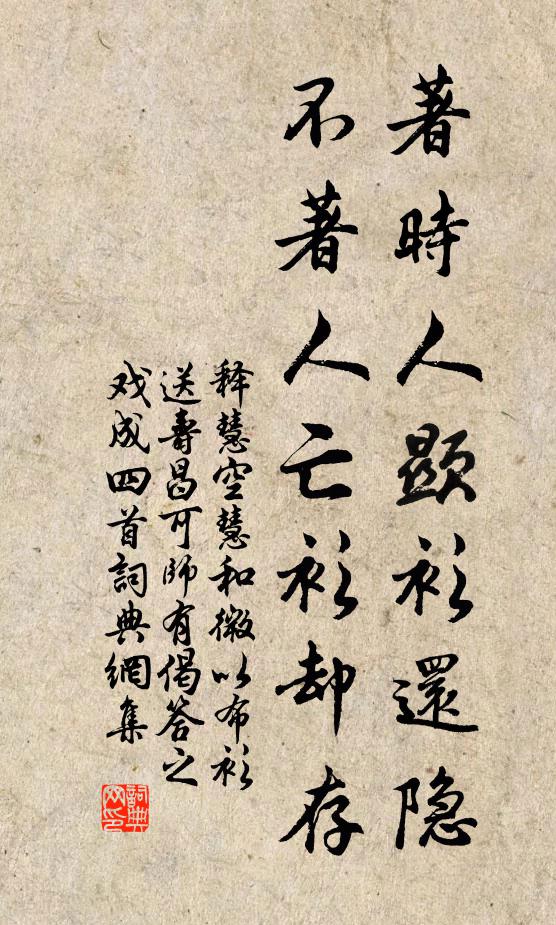 著時人顯衫還隐
不著人亡衫却存
释慧空慧和微以布衫
送壽昌可師有偈答之
戏成四首詞典網集
詞典网印